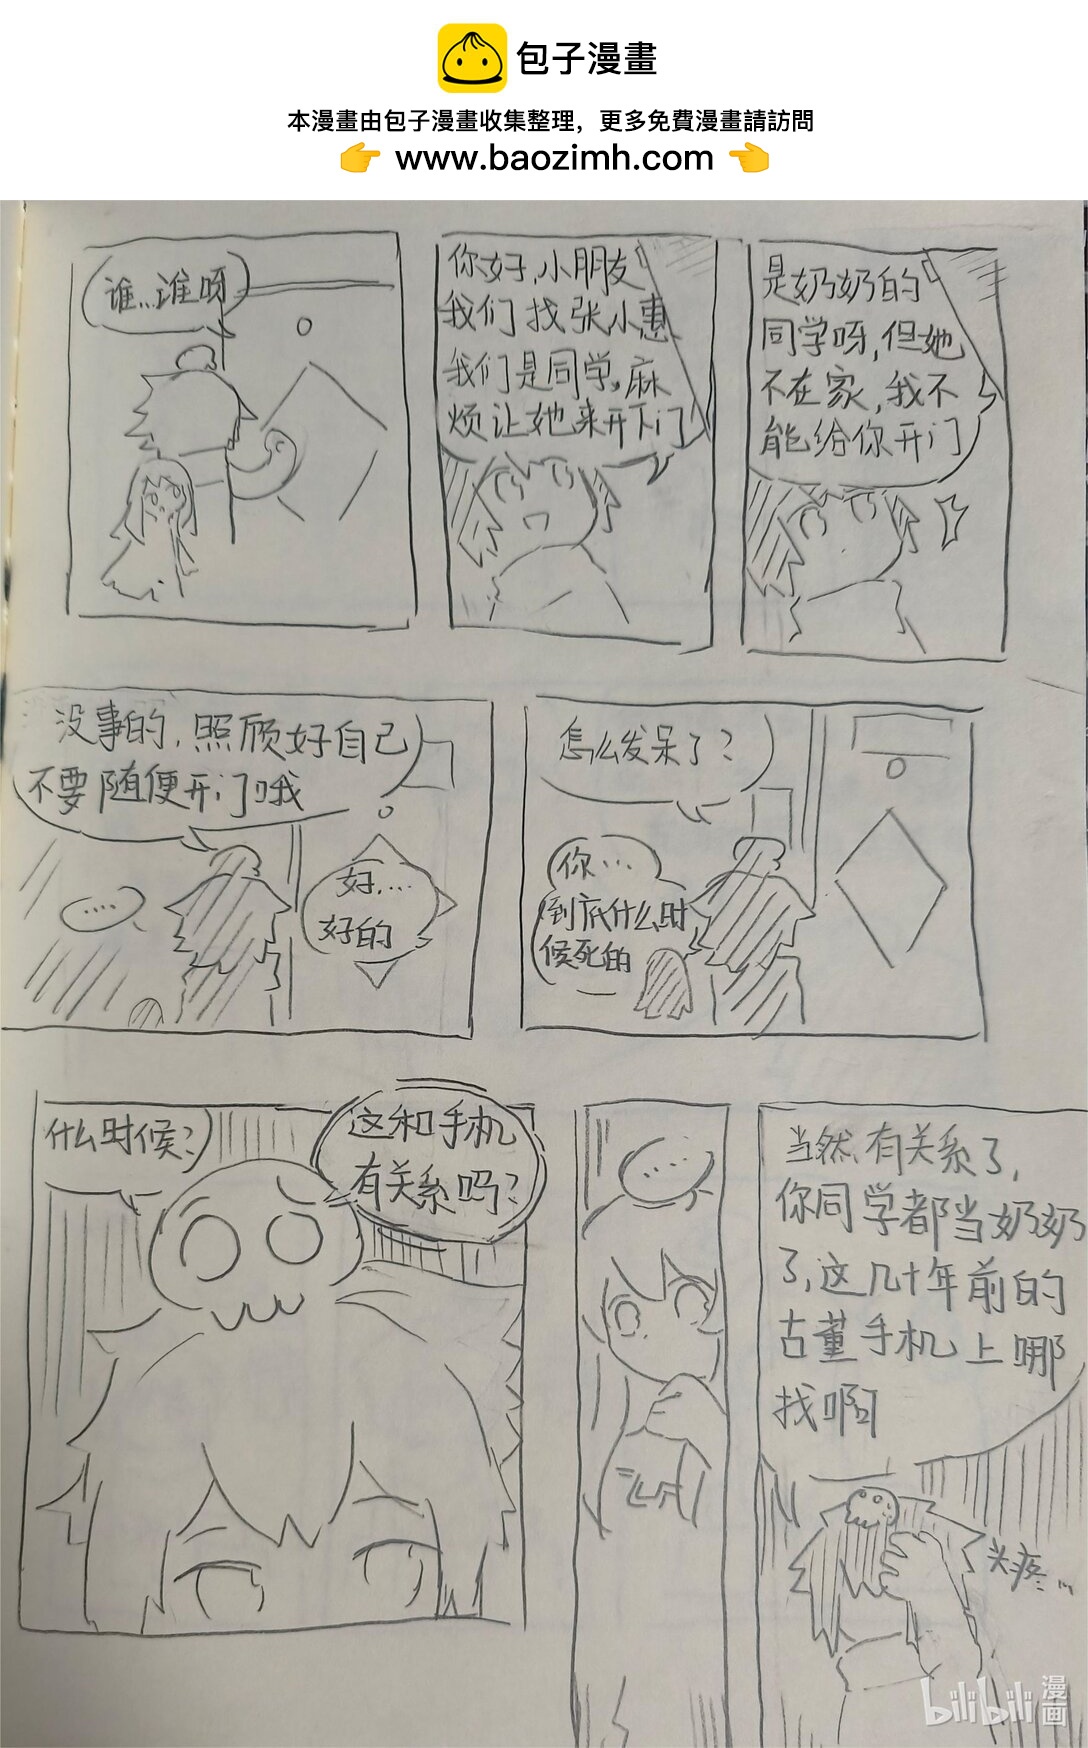 包子漫畫
本漫畫由包子漫畫收集整理，更多免費漫畫請訪問
👉 www.baozimh.com 👈
谁...谁呀
你好，小朋友
我们找张小惠
我们是同学，麻
烦让她来开下门
是奶奶的
同学呀，但她
不在家，我不
能给你开门
没事的，照顾好自己
不要随便开门哦
....
好....
好的
怎么发呆了？
你...
到底什么时
候死的
什么时候？
这和手机
有关系吗？
....
当然有关系了，
你同学都当奶奶
了，这几十年前的
古董手机上哪
找啊
头疼...
bilibili漫画